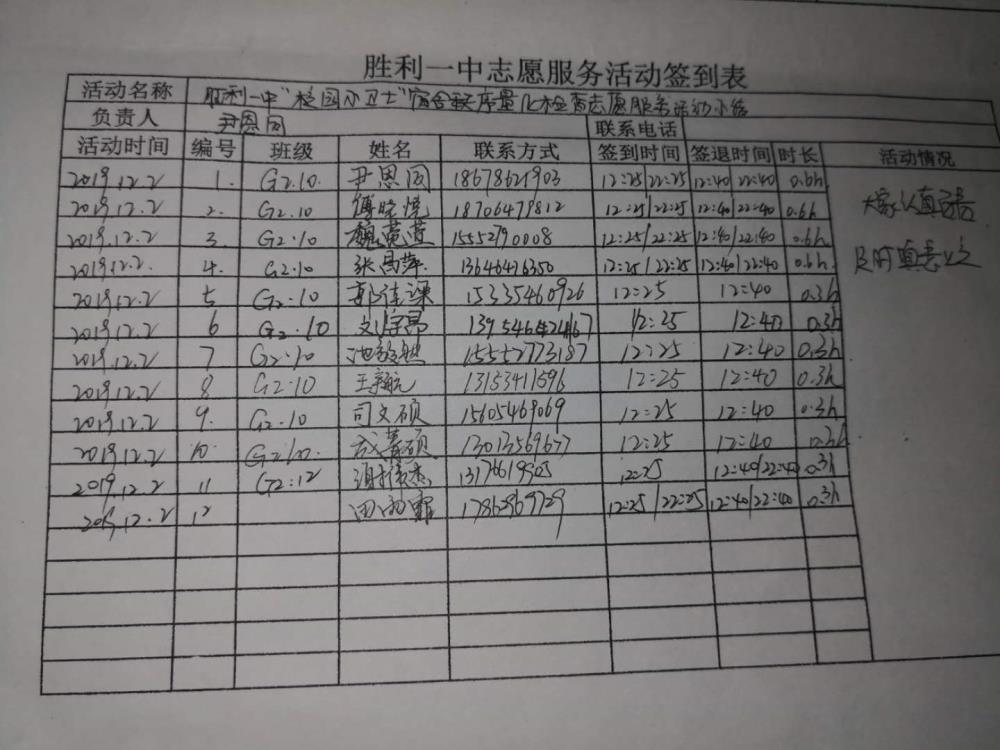 胜利一中志愿服务活动签到表
活动名称 胜利一中"校园小卫士"宿舍秩序量化检查志愿服务活动小结
负责人 尹恩同 联系电话
活动时间 编号 班级 姓名 联系方式 签到时间 签退时间 时长 活动情况
2019.12.2 1. G2.10 尹恩同 18678621903 12:25/22:25 12:40/22:40 0.6h
2019.12.2 2. G2.10 傅晓悦 18706479812 12:25/22:25 12:40/22:40 0.6h 大家认真
2019.12.2 3. G2.10 魏 15552790008 12:25/22:25 12:40/22:40 0.6h
2019.12.2. 4. G2.10 张昌萍 13646416350 12:25/22:25 12:40/22:40 0.6h 及时
2019.12.2 5 G2.10 15335460926 12:25 12:40 0.3h
2019.12.2 6 G2.10 12:25 12:40 0.3h
2019.12.2 7 G2.10 15552773187 12:25 12:40 0.3h
2019.12.2 8 G2.10 王 航 13153411596 12:25 12:40 0.3h
2019.12.2 9. G2.10 司文硕 15605469069 12:25 12:40 0.3h
2019.12.2 10. G2.10. 硕 13013569677 12:25 12:40 0.3h
2019.12.2 11 G2.12 12:25 12:40/22:40 0.3h
2019.12.2 12 田雨霏 17862969729 12:25/22:25 12:40/22:40 0.3h